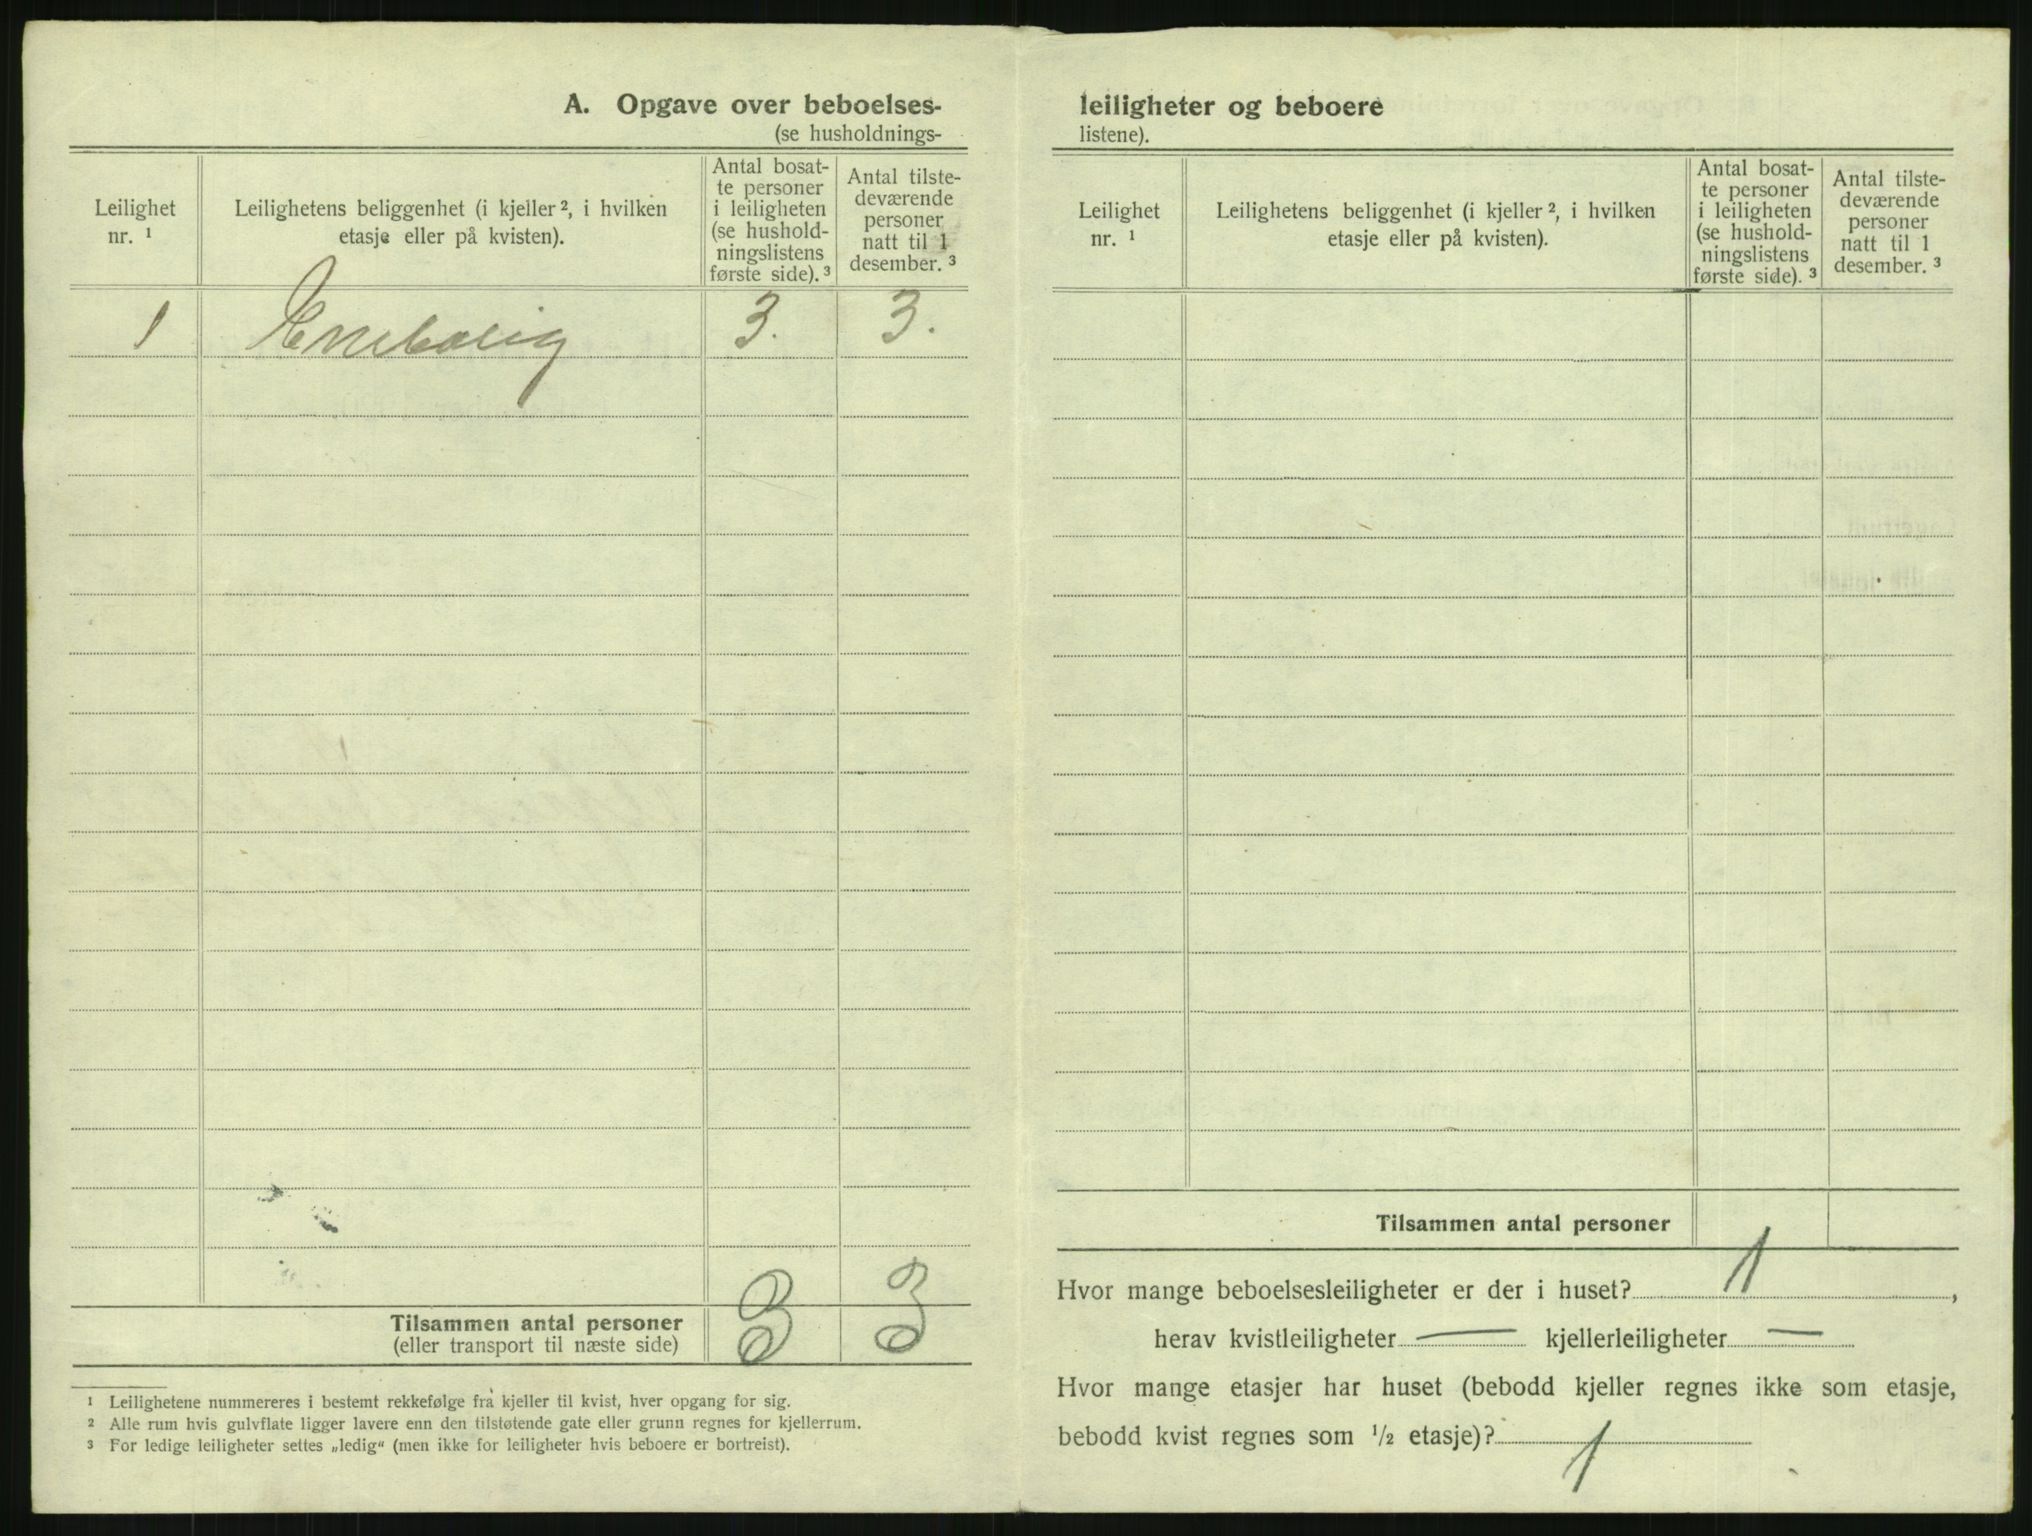 A. Opgave over beboelses-
(se husholdnings-
Leilighet nr. ¹
Leilighetens beliggenhet (i kjeller ², i hvilken etasje eller på kvisten).
Antal bosat-
te personer
i leiligheten
(se hushold-
ningslistens
første side). ³
Antal tilste-
deværende
personer
natt til 1
desember. ³
1 Enebolig 3. 3.
Tilsammen antal personer 3 3
(eller transport til næste side)
¹ Leilighetene nummereres i bestemt rekkefølge fra kjeller til kvist, hver opgang for sig.
² Alle rum hvis gulvflate ligger lavere enn den tilstøtende gate eller grunn regnes for kjellerrum.
³ For ledige leiligheter settes „ledig“ (men ikke for leiligheter hvis beboere er bortreist).
leiligheter og beboere
listene).
Leilighet nr. ¹
Leilighetens beliggenhet (i kjeller ², i hvilken etasje eller på kvisten).
Antal bosat-
te personer
i leiligheten
(se hushold-
ningslistens
første side). ³
Antal tilste-
deværende
personer
natt til 1
desember. ³
Tilsammen antal personer
Hvor mange beboelsesleiligheter er der i huset? 1,
herav kvistleiligheter — kjellerleiligheter —
Hvor mange etasjer har huset (bebodd kjeller regnes ikke som etasje,
bebodd kvist regnes som ½ etasje)? 1